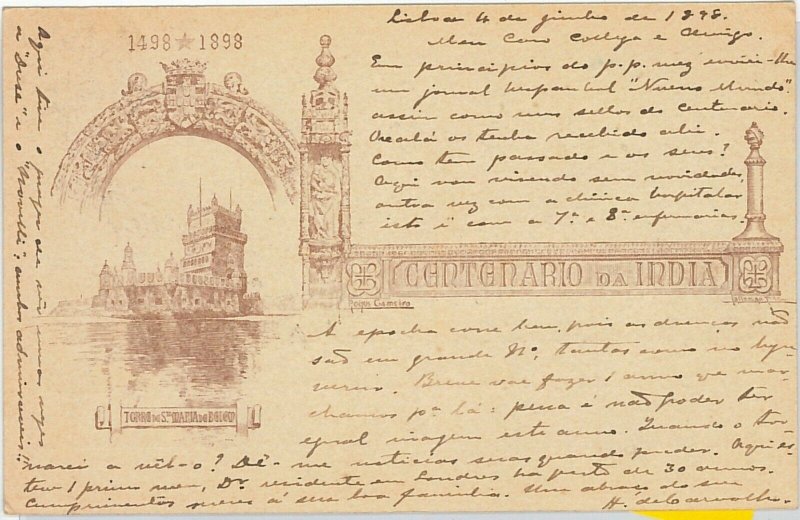 1498 ★ 1898
Lisboa 4 de junho de 1898.
Meu Caro Collega e Amigo.
Em principios do p.p. mez enviei-lhe
um jornal hespanhol "Nuevo Mundo"
assim como uns sellos do Centenario.
Oxalá os tenha recebido ali.
Como tem passado e os seus?
Aqui vou vivendo sem novidades,
outra vez com a clinica hospitalar
isto é com a 7ª e 8ª enfermarias.
CENTENARIO DA INDIA
Roque Gameiro
A epocha corre bem, pois as doenças não
são em grande Nº, tantas como no
Breve vae fazer 1 anno que mar-
chamos pª lá: pena é não poder ter
egual viagem este anno. Quando o tor-
TORRE DE Sta MARIA DE BELEM
narei a vêl-o? Dê-me noticias suas quando puder. Aqui es-
teve 1 primo meu, Dr. residente em Londres ha perto de 30 annos.
Cumprimentos meus á sua boa familia. Um abraço do seu
H. de Carvalho.
Aqui tive o prazer de vêr umas vezes
a "Duse" e o "Novelli": ambos admiraveis!!